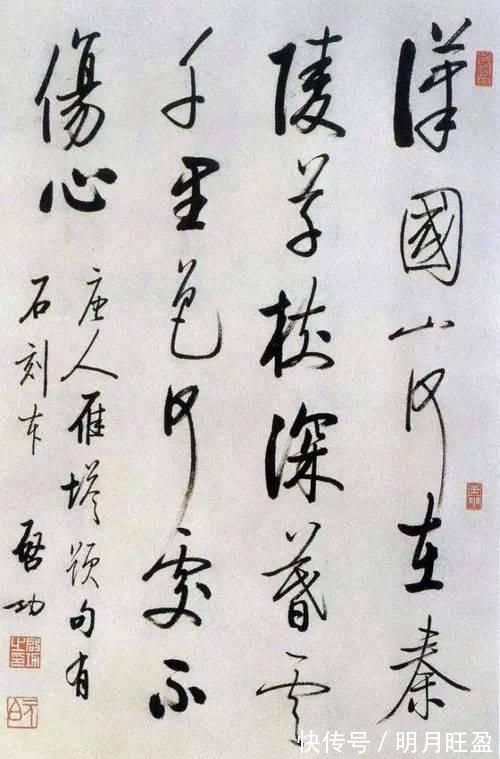 漢國山河在秦
陵草樹深暮雲
千里色何處不
傷心
唐人雁塔題句有
石刻本 啓功
快传号 / 明月旺盈